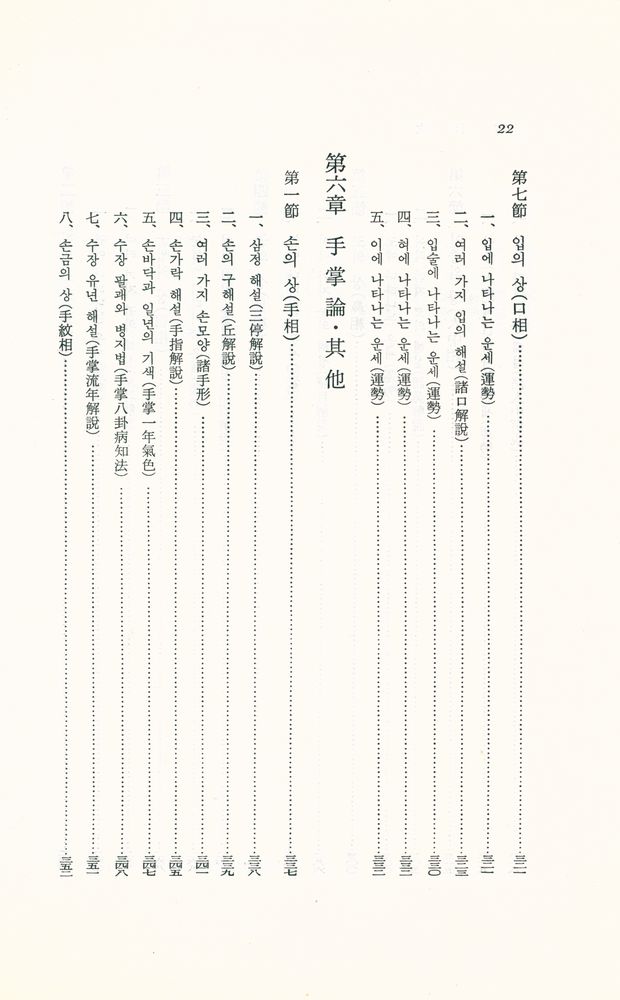 22
第七節 입의 상(口相)……三二一
一、입에 나타나는 운세(運勢)……三二一
二、여러 가지 입의 해설(諸口解說)……三二三
三、입술에 나타나는 운세(運勢)……三三〇
四、혀에 나타나는 운세(運勢)……三三二
五、이에 나타나는 운세(運勢)……三三二
第六章 手掌論·其他
第一節 손의 상(手相)……三三七
一、삼정 해설(三停解說)……三三八
二、손의 구해설(丘解說)……三三九
三、여러 가지 손모양(諸手形)……三四一
四、손가락 해설(手指解說)……三四五
五、손바닥과 일년의 기색(手掌一年氣色)……三四七
六、수장 팔괘와 병지법(手掌八卦病知法)……三四八
七、수장 유년 해설(手掌流年解說)……三五一
八、손금의 상(手紋相)……三五二